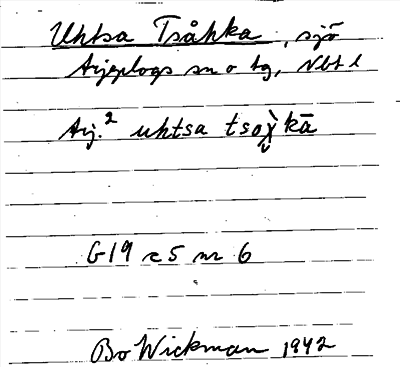 Uhtsa Tsåhka, sjö
Arjeplogs sn o tg, Nbt l
Arj.² uhtsa tsoχ̀kā
G19 r5 nr 6
Bo Wickman 1942